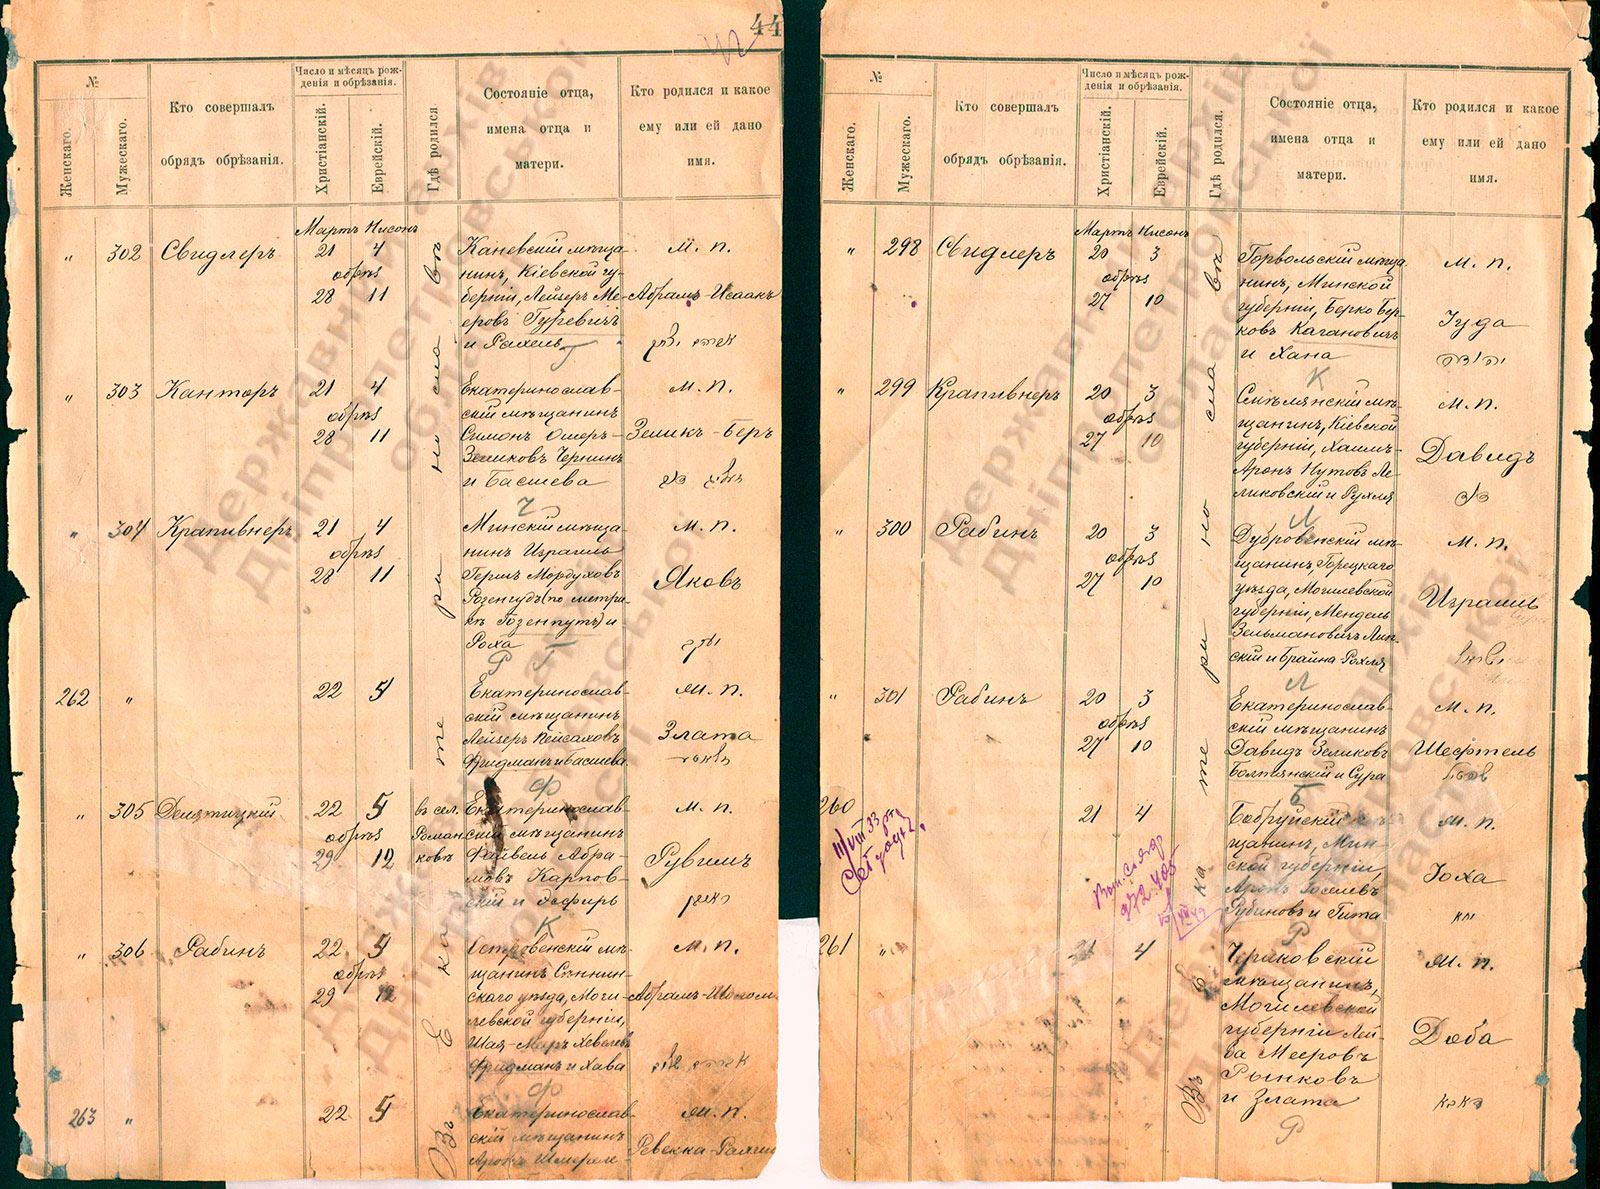 44
№
Женскаго.
Мужескаго.
Кто совершалъ
обрядъ обрѣзанія.
Число и мѣсяцъ рож-
денія и обрѣзанія.
Христіанскій.
Еврейскій.
Гдѣ родился
Состояніе отца,
имена отца и
матери.
Кто родился и какое
ему или ей дано
имя.
Мартъ Нисонъ
" 302 Свидлеръ
21 4
обрѣз
28 11
Каневскій мѣща-
нинъ, Кіевской гу-
берніи, Лейзеръ Ме-
еровъ Гуревичъ
и Рахель
м. п.
Абрамъ-Исаакъ
" 303 Канторъ
21 4
обрѣз
28 11
Екатеринослав-
скій мѣщанинъ
Симонъ Ошеръ-
Зеликовъ Чернинъ
и Басшева
Ч
м. п.
Зеликъ-Беръ
" 304 Крапивнеръ
21 4
обрѣз
28 11
Минскій мѣща-
нинъ Израиль
Гершъ Мордуховъ
Розенгудъ (по метри-
кѣ Гозенпутъ) и
Роха
Р Г
м. п.
Яковъ
262 "
22 5
Екатеринослав-
скій мѣщанинъ
Лейзеръ Пейсаховъ
Фридманъ и Басшева
Ф
м. п.
Злата
" 305
22 5
обрѣз
29 12
въ сел.
Роман
ковъ
Екатеринослав-
скій мѣщанинъ
Файвель Абра-
мовъ Карпов-
скій и Эсфирь
К
м. п.
Рувимъ
" 306 Рабинъ
22 5
обрѣз
29 12
Островенскій мѣ-
щанинъ Сѣннин-
скаго уѣзда, Моги-
левской губерніи,
Шая-Меръ Хевелевъ
Фридманъ и Хава
Ф
м. п.
263 "
22 5
Екатеринослав-
скій мѣщанинъ
м. п.
Въ Екатеринославѣ
№
Женскаго.
Мужескаго.
Кто совершалъ
обрядъ обрѣзанія.
Число и мѣсяцъ рож-
денія и обрѣзанія.
Христіанскій.
Еврейскій.
Гдѣ родился.
Состояніе отца,
имена отца и
матери.
Кто родился и какое
ему или ей дано
имя.
Мартъ Нисонъ
" 298 Свидлеръ
20 3
обрѣз
27 10
Горвольскій мѣща
нинъ, Минской
губерніи, Берко Бер-
ковъ Кагановичъ
и Хана
К
м. п.
Іуда
" 299 Крапивнеръ
20 3
обрѣз
27 10
Смѣлянскій мѣ-
щанинъ, Кіевской
губерніи, Хаимъ-
Аронъ Нутовъ Ле-
ликовскій и Рухля
Л
м. п.
Давидъ
" 300 Рабинъ
20 3
обрѣз
27 10
Дубровенскій мѣ-
щанинъ, Горецкаго
уѣзда, Могилевской
губерніи, Мендель
Зельмановичъ Лип-
скій и Брайна Рохля
Л
м. п.
Израиль
" 301 Рабинъ
20 3
обрѣз
27 10
Екатеринослав-
скій мѣщанинъ
Давидъ Зеликовъ
Болтянскій и Сура
Б
м. п.
Шефтель
260
21 4
Бобруйскій мѣ
щанинъ, Мин-
ской губерніи,
Рубиновъ и Гита
Р
м. п.
Іоха
261 "
21 4
Чериковскій
мѣщанинъ,
Могилевской
губерніи Лей-
ба Мееровъ
Рынковъ
и Злата
Р
м. п.
Доба
Въ Екатеринославѣ
Державний архів
Дніпропетровської
області